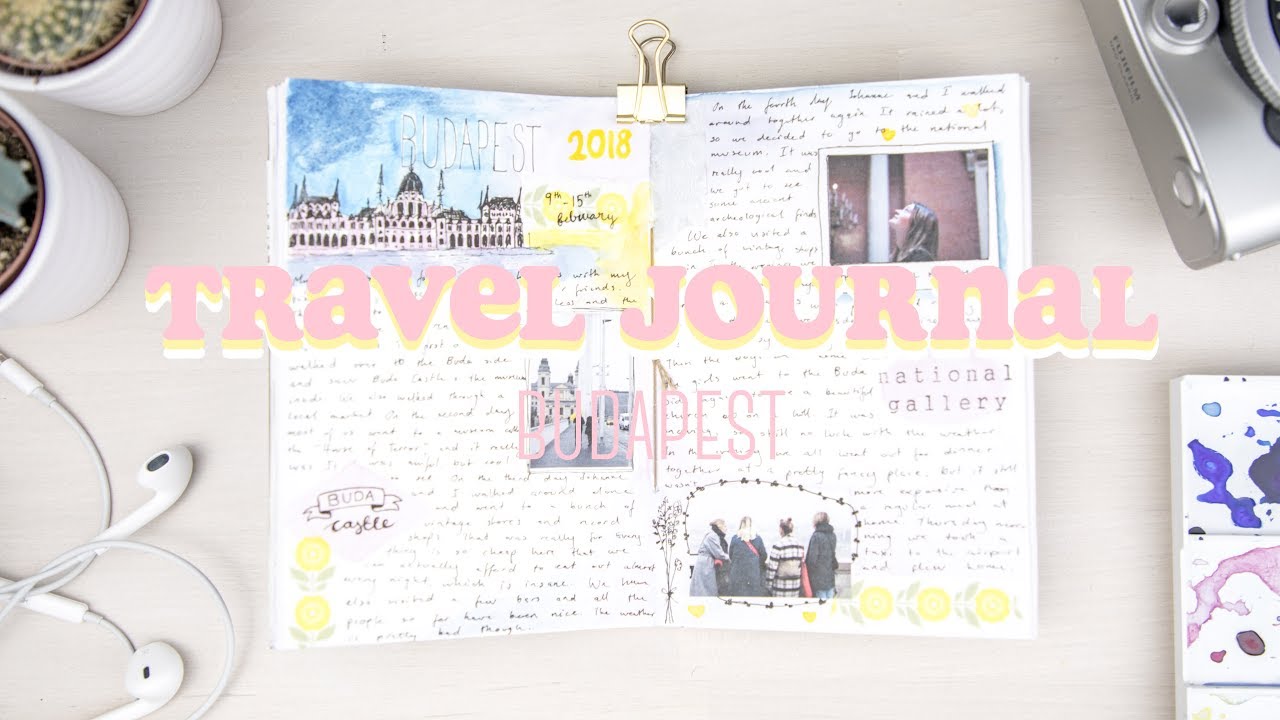 BUDAPEST 2018
9th-15th
february
with my
friends.
and the
TRAVEL JOURNAL
BUDAPEST
walked over to the Buda side
and saw Buda Castle + the museum
inside. We also walked through a
local market. On the second day
most of us went to a museum called
the House of Terror, and it really
was. It was awful but cool
to see. On the third day Johanne
and I walked around alone
and went to a bunch of
vintage stores and record
shops. That was really fun. Every
thing is so cheap here that we
can actually afford to eat out almost
every night, which is insane. We have
also visited a few bars and all the
people so far have been nice. The weather
is pretty bad though.
BUDA
castle
On the fourth day Johanne and I walked
around together again. It rained a lot,
so we decided to go to the national
museum. It was
really cool and
we got to see
some ancient
archeological finds
We also visited a
bunch of vintage shops
national
gallery
Then the guys
girls went to the Buda
a beautiful
church on a hill. It was
so still no luck with the weather
In the evening we all went out for dinner
together at a pretty fancy place, but it still
wasn't
more expensive than
a regular meal at
home. Thursday mor
ning we took a
taxi to the airport
and flew home.
FUJIFILM